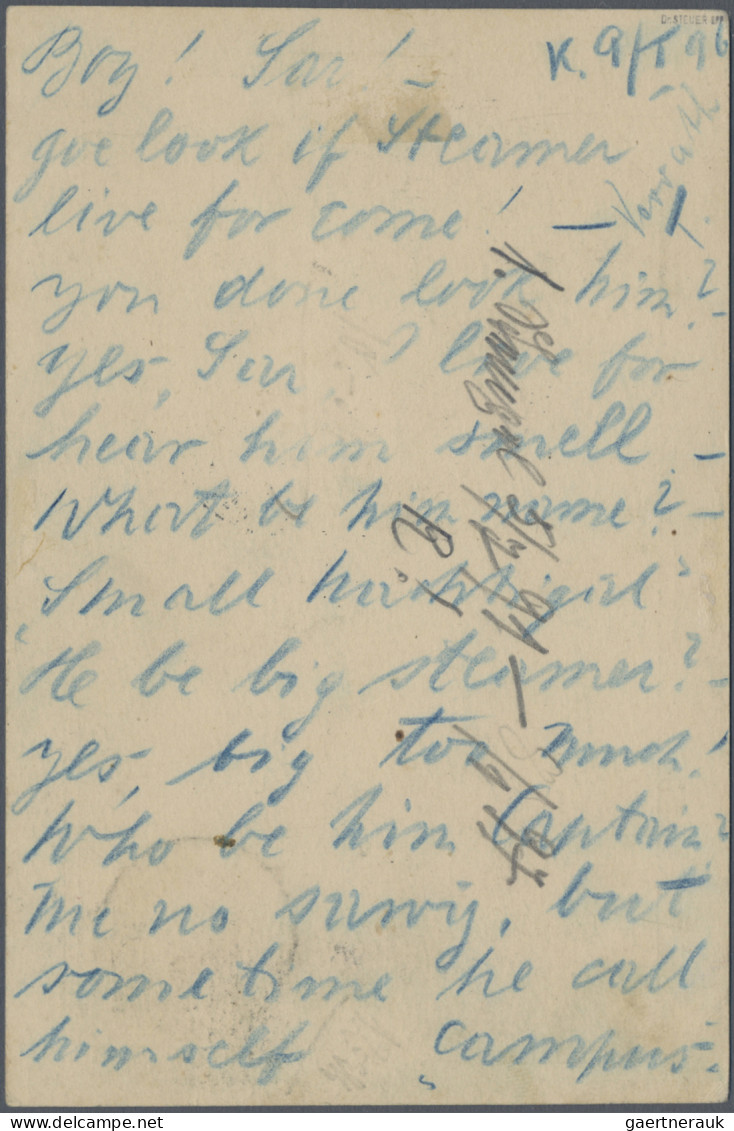 Dr. STEUER
K. 9/5 96
Boy! Sar! –
goe look if Steamer
live for come! –
you done look him? –
yes, Sar, I live for
hear him smell –
What be him name? –
"Small nachtigal"
He be big steamer? –
yes, big too much!
Who be him Captain?
me no savvy, but
some time he call
himself "campus".
gaertnerauk